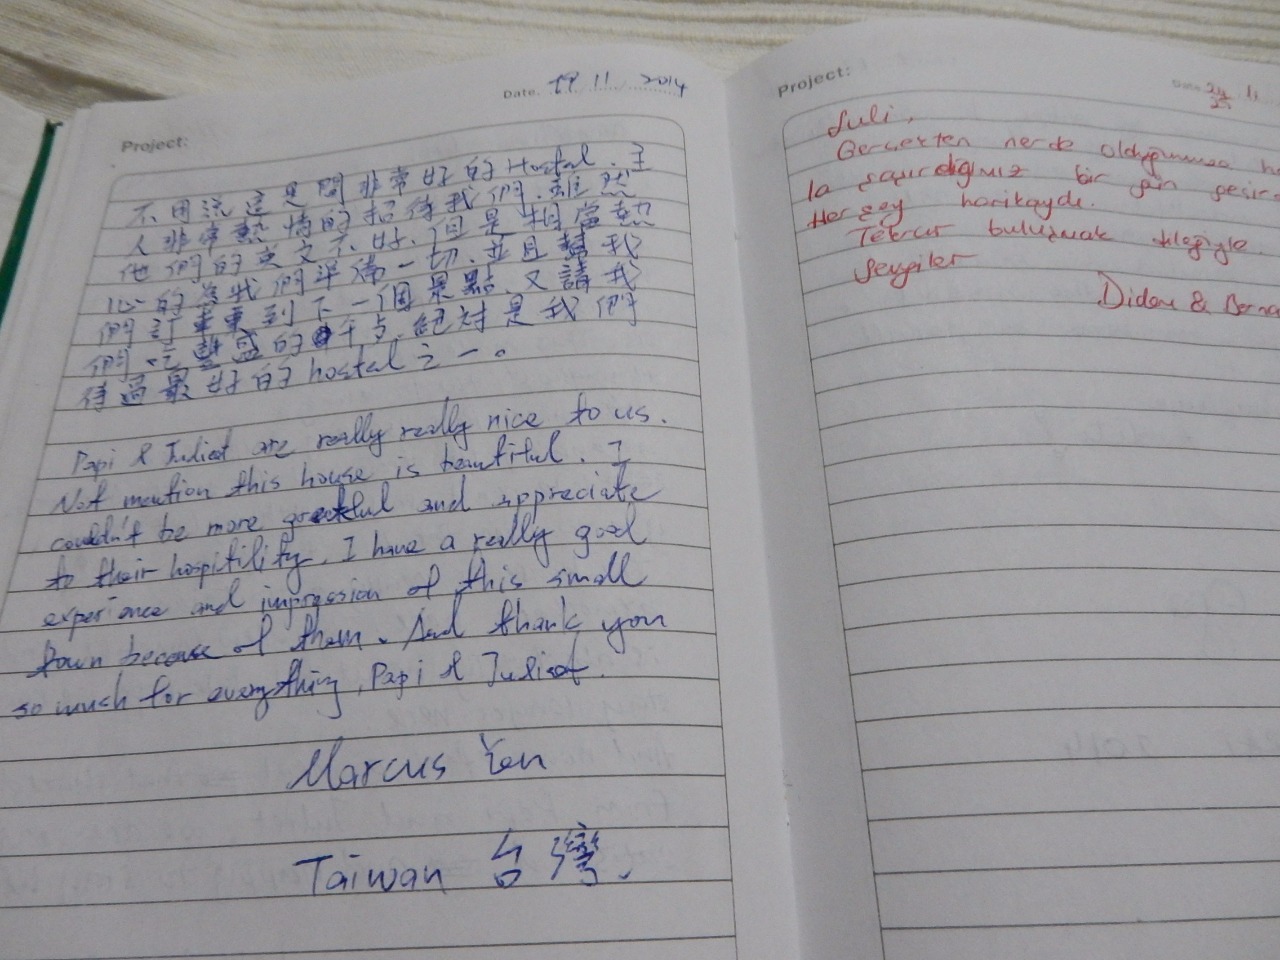 Project:
Date. 19 11 2014
不用說這是間非常好的Hostal.主
人非常熱情的招待我們.雖然
他們的英文不好.但是相當熱
心的為我們準備一切.並且幫我
們訂車車到下一個景點.又請我
們吃豐盛的午点.絕對是我們
待過最好的hostal之一。
Papi & Juliet are really really nice to us.
Not mention this house is beautiful. I
couldn't be more grateful and appreciate
to their hospitility. I have a really good
experience and impression of this small
town because of them. And thank you
so much for everything, Papi & Juliet.
Marcus Yen
Taiwan 台灣
Project:
11
Juli,
Gerçekten nerde olduğumuza
la şaşırdığımız bir gün
Herşey harikaydı.
Tekrar buluşmak dileğiyle
Sevgiler
Didem & Berna